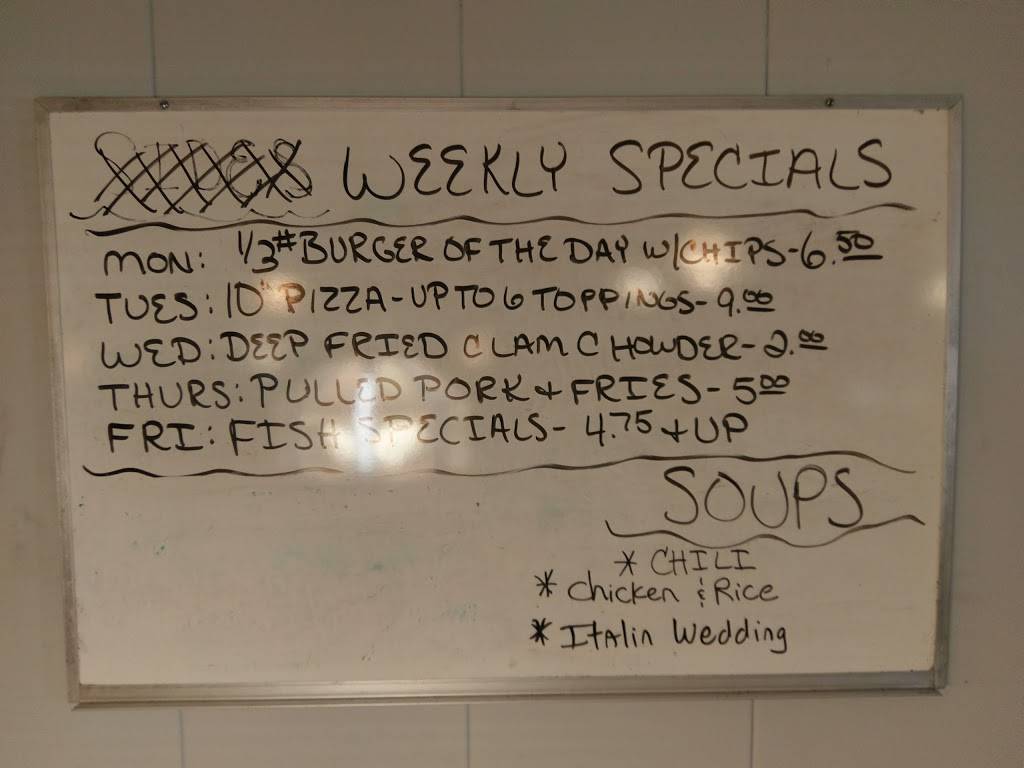 WEEKLY SPECIALS
MON: 1/3# BURGER OF THE DAY W/CHIPS-6.50
TUES: 10" PIZZA-UP TO 6 TOPPINGS-9.00
WED: DEEP FRIED CLAM CHOWDER-2.00
THURS: PULLED PORK & FRIES-5.00
FRI: FISH SPECIALS-4.75 & UP
SOUPS
* CHILI
* Chicken & Rice
* Italin Wedding